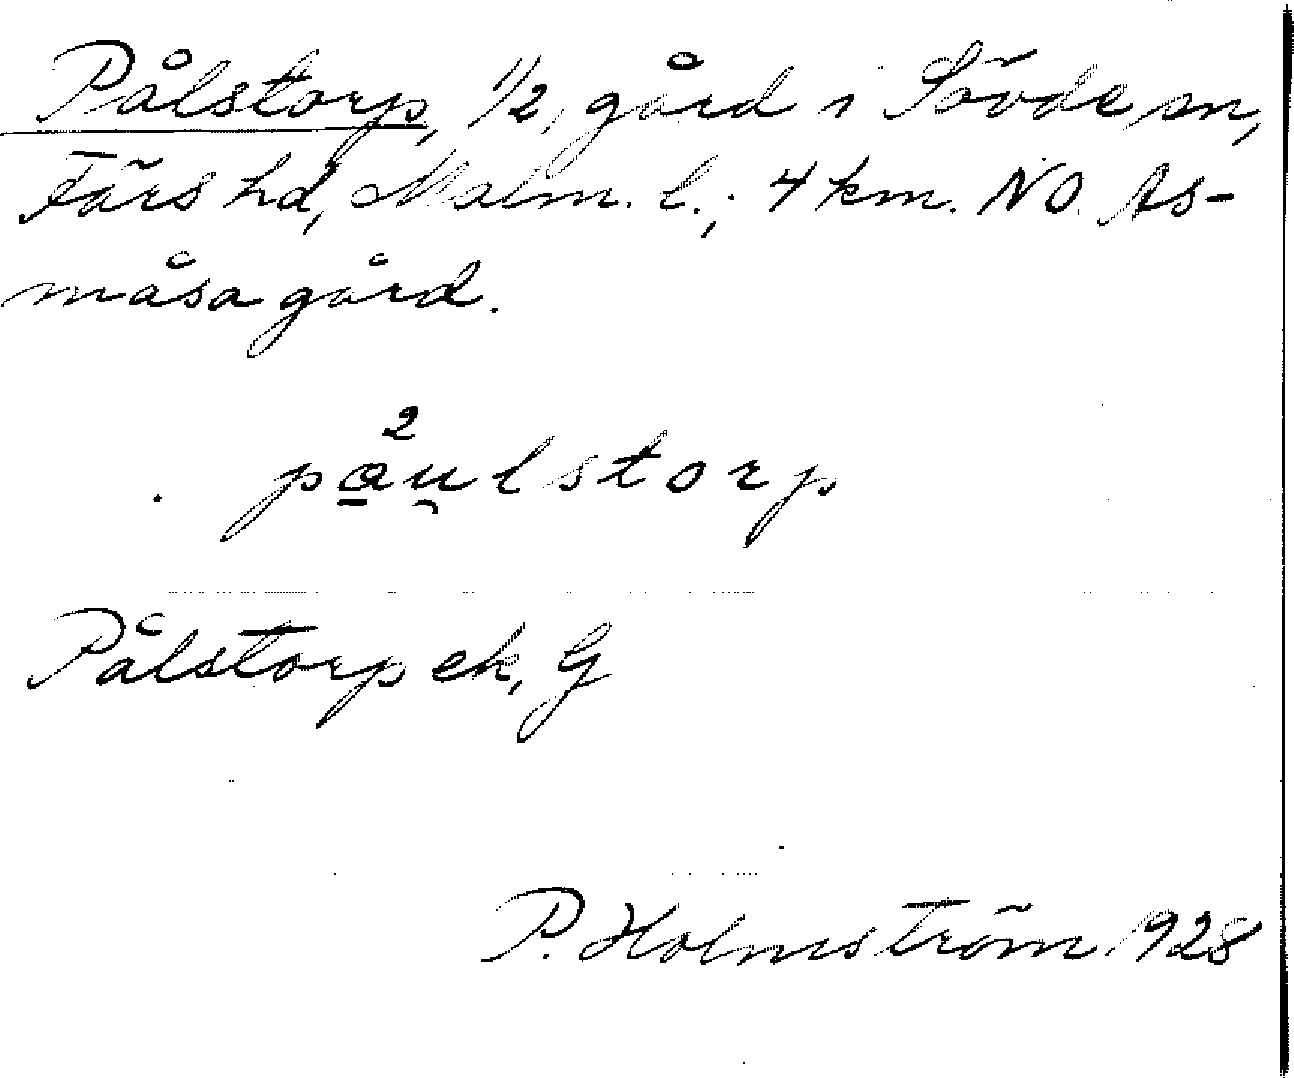 Pålstorp, 1/2, gård i Sövde sn,
Färs hd, Malm. l.; 4 km. NO. As-
måsa gård.
2
pau̯lstorp
Pålstorp ek, G
P. Holmström 1928